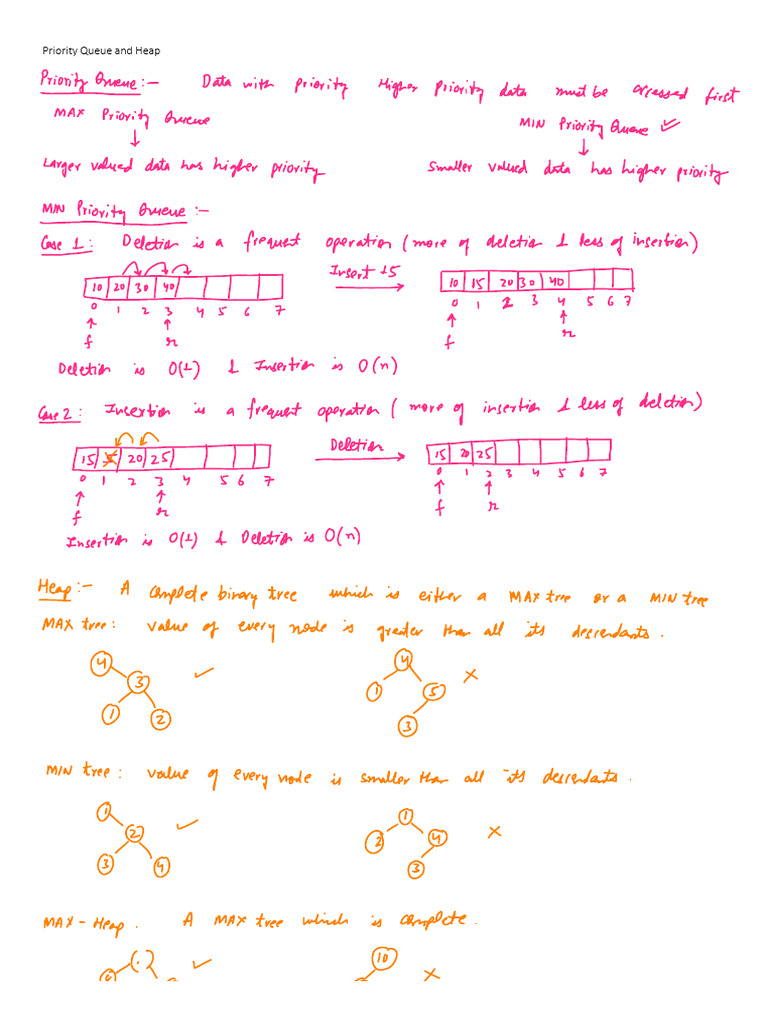 Priority Queue and Heap
Priority Queue :- Data with priority Higher priority data must be accessed first
MAX Priority Queue
MIN Priority Queue ✓
↓
↓
Larger valued data has higher priority
Smaller valued data has higher priority
MIN Priority Queue :-
Case 1: Deletion is a frequent operation (more of deletion & less of insertion)
10 20 30 40
Insert 15
10 15 20 30 40
0 1 2 3 4 5 6 7
0 1 2 3 4 5 6 7
f r
f r
Deletion is O(1) & Insertion is O(n)
Case 2: Insertion is a frequent operation (more of insertion & less of deletion)
15 5 20 25
Deletion
15 20 25
0 1 2 3 4 5 6 7
0 1 2 3 4 5 6 7
f r
f r
Insertion is O(1) & Deletion is O(n)
Heap :- A complete binary tree which is either a MAX tree or a MIN tree
MAX tree: value of every node is greater than all its descendants.
4
3
1 2
✓
4
1 5
3
×
MIN tree: value of every node is smaller than all its descendants.
1
2
3 4
✓
1
2 4
3
×
MAX-Heap. A MAX tree which is complete.
✓
10
×